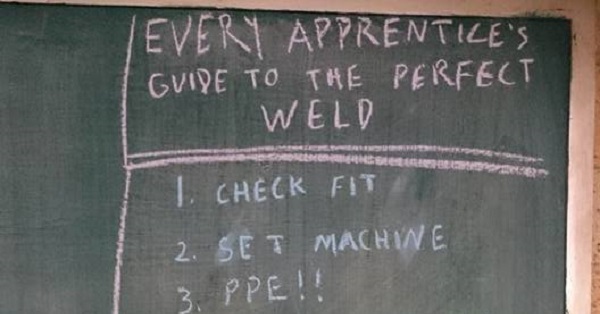 EVERY APPRENTICE'S
GUIDE TO THE PERFECT
WELD
1. CHECK FIT
2. SET MACHINE
3. PPE!!